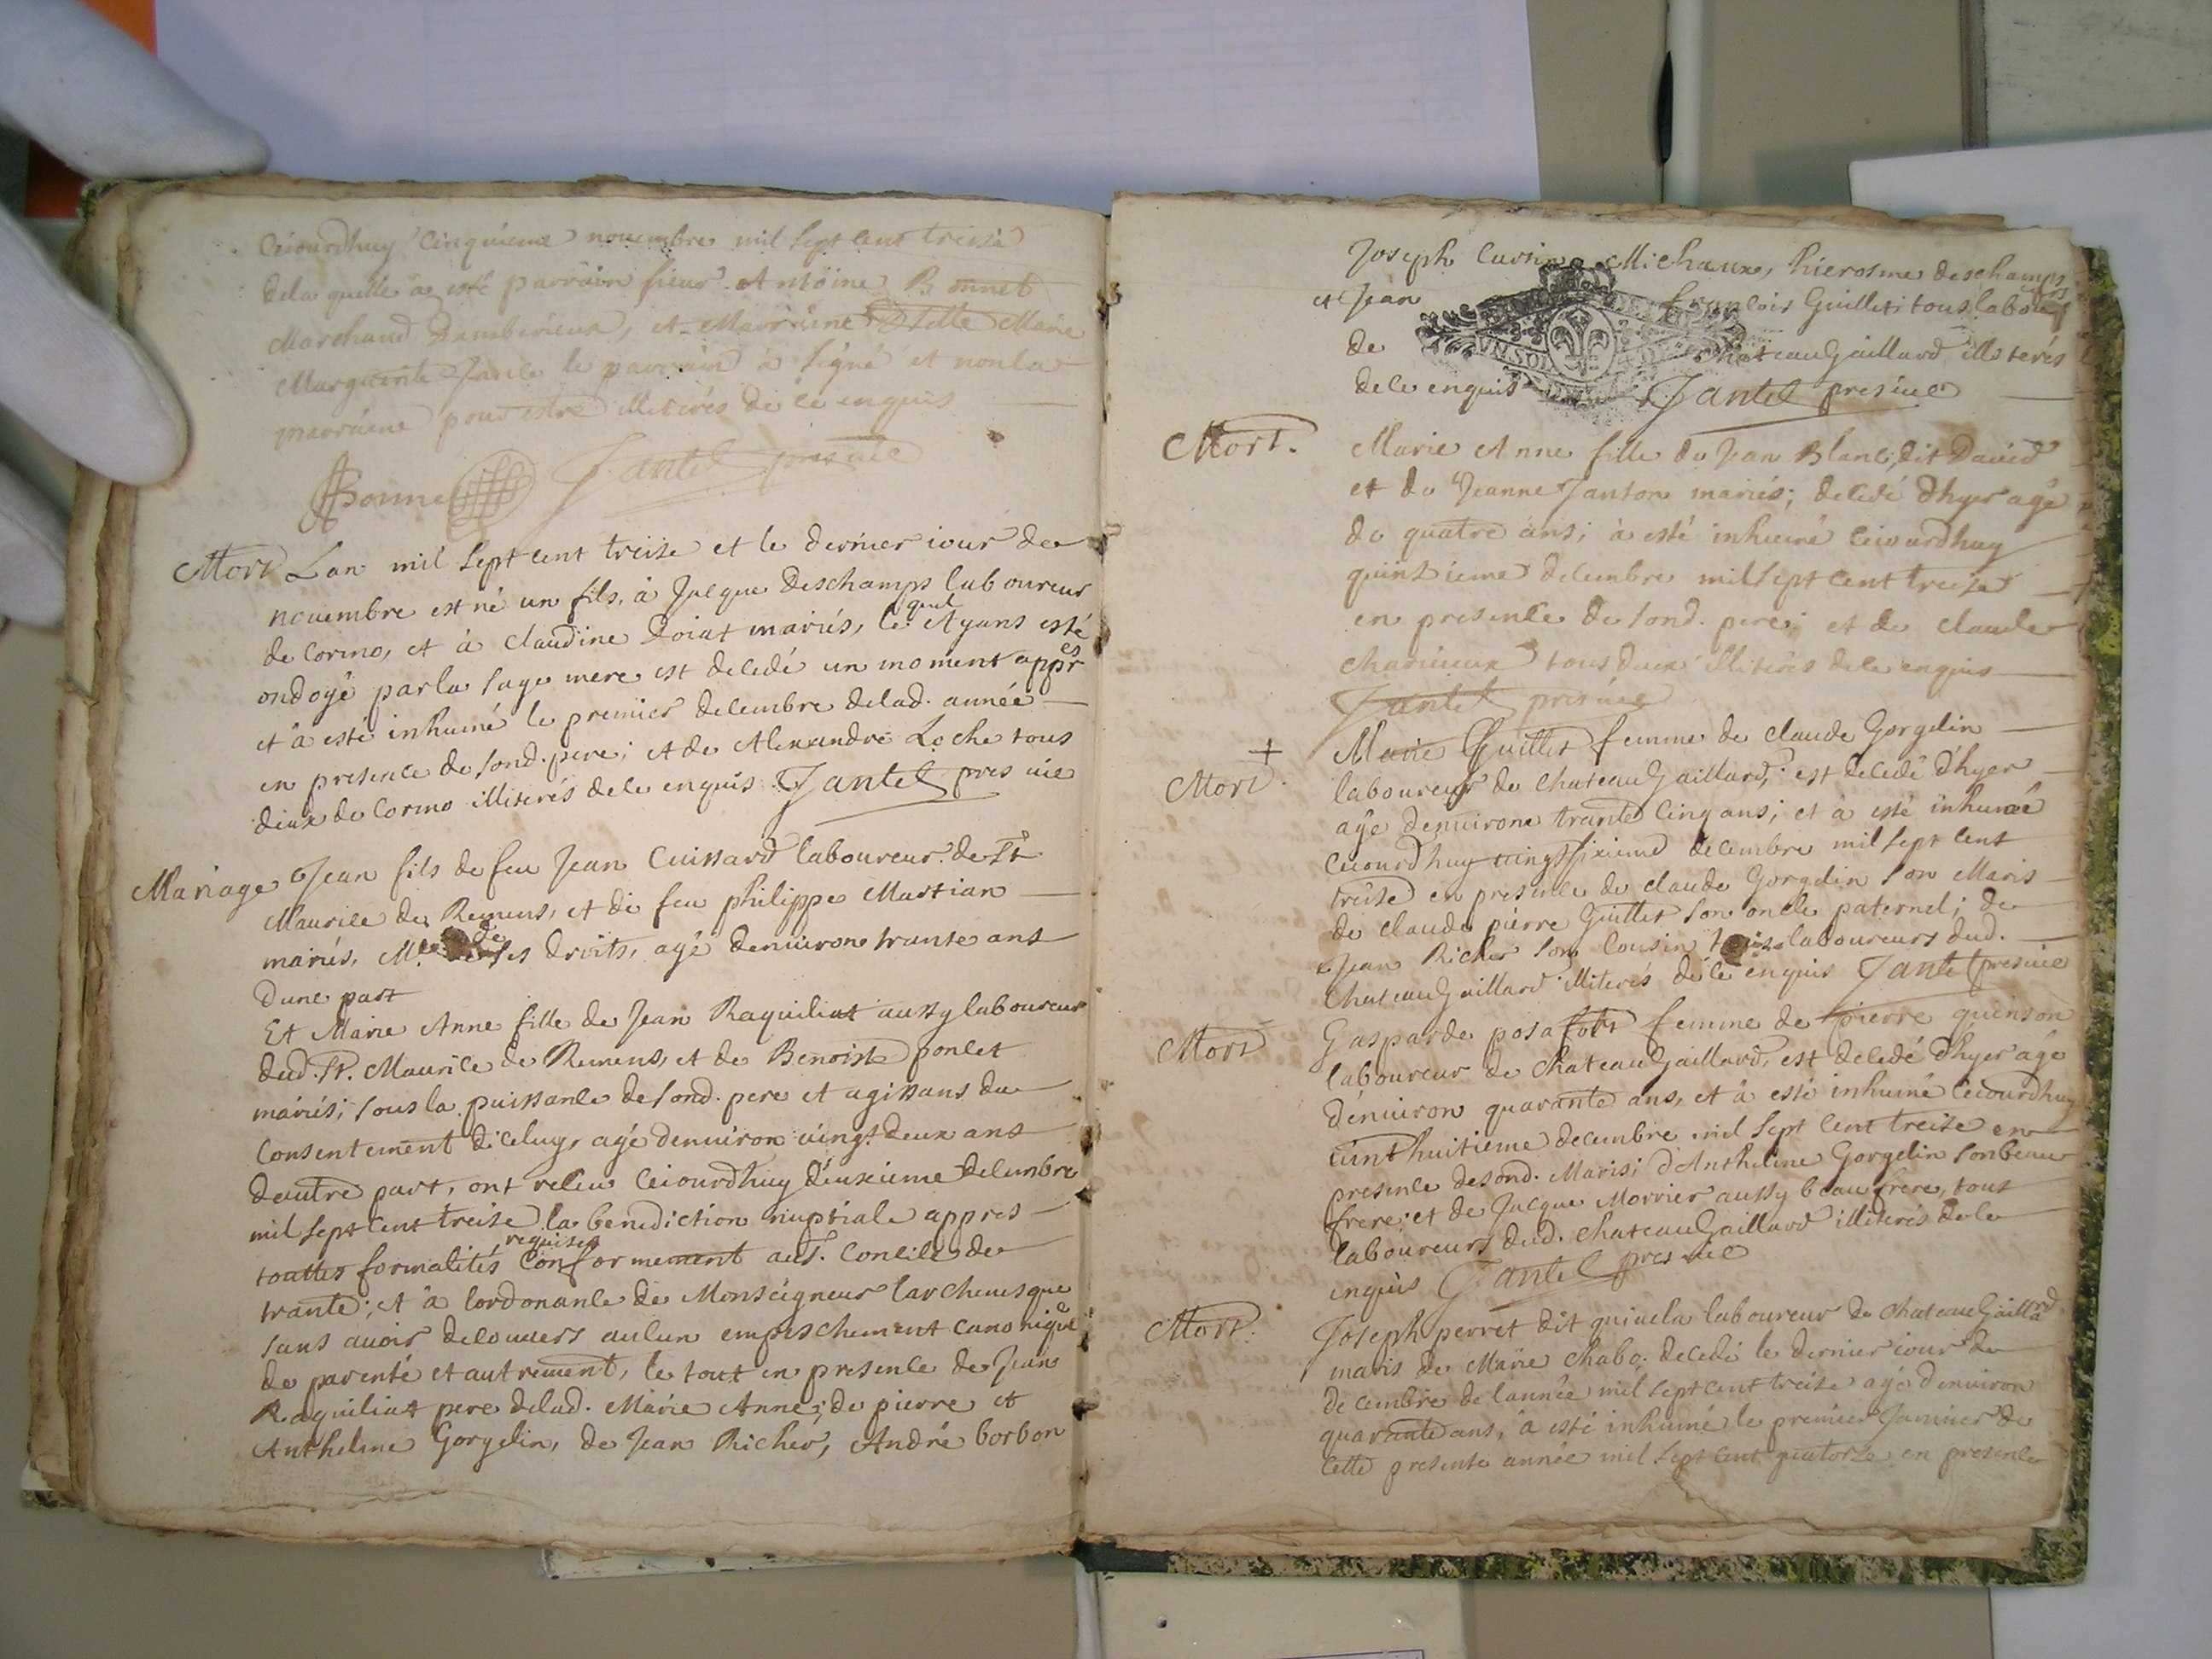 Ceiourdhuy cinquieme nouembre mil sept cent treise
dela quelle à esté parrain sieur Antoine Bonnet
Marchand Damberieux, et Marraine Dlle Marie
Marguerite le parrain à signé et non la
marraine pour estre illiterés de ce enquis
Bonnet Jantet pres uic
Mort Lan mil sept cent treise et le dernier iour de
nouembre est né un fils, à Jacque Deschamps laboureur
de Cormo, et à claudine Doiat mariés, lequel Ayans esté
ondoyé par la sage mere est decedé un moment appres
et à esté inhumé le premier decembre delad. année
en presence de sond. pere; et de Alexandre Loche tous
deux de Cormo illiterés de ce enquis Jantet pres uic
Mariage Jean fils de feu Jean Cuissard laboureur de St
Maurice de Remens, et de feu philippe Martian
mariés, Mtre de ses droits, agé denuiron trante ans
dune part
Et Marie Anne fille de Jean Raquiliat aussy laboureur
dud. St. Maurice de Remens, et de Benoiste poncet
mariés; sous la puissance de sond. pere et agissans du
Consentement diceluy, agé denuiron uingt deux ans
dautre part, ont receu Ceiourdhuy deuxieme decembre
mil sept cent treise la benediction nuptiale appres
touttes formalités requises Conformement au St. Concile de
trante; et à lordonance de Monseigneur larcheuesque
sans auoir decouuers aucun empeschement canonique
de parenté et autrement, le tout en presence de Jean
Raquiliat pere delad. Marie Anne; de pierre et
Anthelme Gorgelin, de Jean Richer, André borbon
Joseph Cursin Michaux, hierosme deschamps
et Jean françois Guillet; tous laboureurs
de chateauGaillard illiterés
de ce enquis Jantet pres uic
Mort. Marie Anne fille de Jean Blanc, dit Dauid
et de Jeanne Janton mariés; decedé dhyer agé
de quatre ans; à esté inhumé ceiourdhuy
quinzieme decembre mil sept cent treise
en presence de sond. pere; et de claude
charuieux tous deux illiterés de ce enquis
Jantet pres uic
+
Mort. Marie Guillet femme de claude Gorgelin
laboureur de chateauGaillard, est decedé dhyer
agé denuirone trante cinq ans; et à esté inhumée
ceiourdhuy uingt sixieme decembre mil sept cent
treise en presence de claude Gorgelin son Maris
de claude pierre Guillet son oncle paternel; de
Jean Richer son Cousin laboureurs dud.
chateauGaillard illiterés de ce enquis Jantet pres uic
Mort Gasparde posafort femme de pierre quinson
laboureur de chateauGaillard, est decedé dhyer agé
denuiron quarante ans, et à esté inhumé ceiourdhuy
uint huitieme decembre mil sept cent treise en
presence de sond. Maris; dAnthelme Gorgelin son beau
frere; et de Jacque Morrier aussy beau frere, tous
laboureurs dud. chateauGaillard illiterés de ce
enquis Jantet pres uic
Mort. Joseph perret dit quinela laboureur de chateauGaillard
maris de Marie chabo. decedé le dernier iour de
decembre de lannée mil sept cent treise agé denuiron
quarante ans, à esté inhumé le premier Januier de
cette presente année mil sept cent quatorze en presence